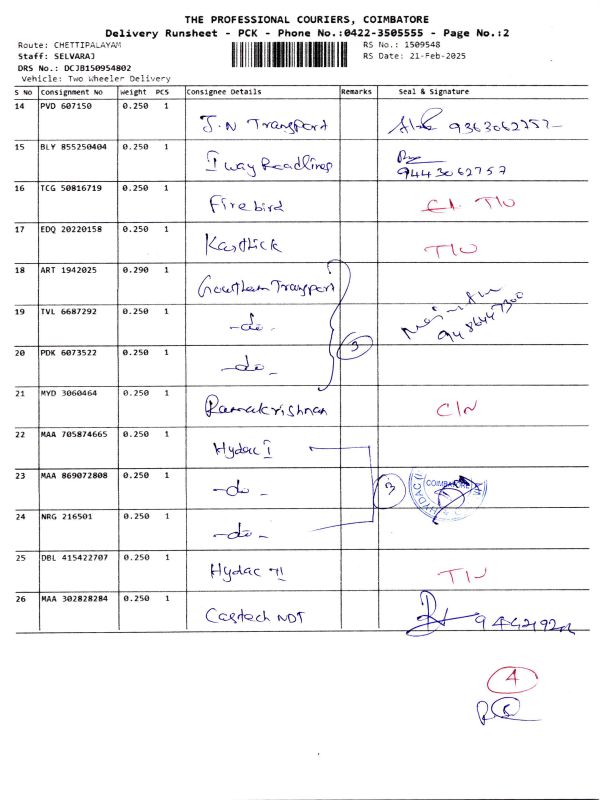 THE PROFESSIONAL COURIERS, COIMBATORE
Delivery Runsheet - PCK - Phone No.:0422-3505555 - Page No.:2
Route: CHETTIPALAYAM RS No.: 1509548
Staff: SELVARAJ RS Date: 21-Feb-2025
DRS No.: DCJB150954802
Vehicle: Two Wheeler Delivery
S No Consignment No Weight PCS Consignee Details Remarks Seal & Signature
14 PVD 607150 0.250 1 J.N Transport 9363062757
15 BLY 855250404 0.250 1 I way Roadlines 9443062757
16 TCG 50816719 0.250 1 Firebird TIN
17 EDQ 20220158 0.250 1 Karthick TIN
18 ART 1942025 0.290 1 Gowtham Transport
19 TVL 6687292 0.250 1 -do- 9486447300
20 PDK 6073522 0.250 1 -do- 3
21 MYD 3060464 0.250 1 Ramakrishnan CIN
22 MAA 705874665 0.250 1 Hydac I
23 MAA 869072808 0.250 1 -do- 3 HYDAC COIMBATORE
24 NRG 216501 0.250 1 -do-
25 DBL 415422707 0.250 1 Hydac II TIN
26 MAA 302828284 0.250 1 Castech NDT
4